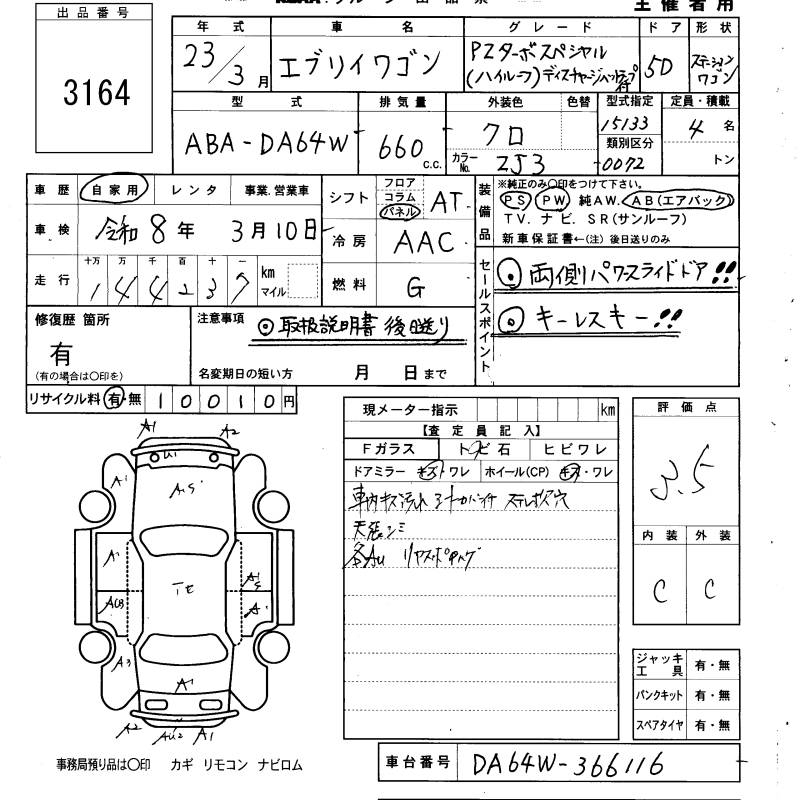 主催者用
出品番号
3164
年式 車名 グレード ドア 形状
23/3月 エブリイワゴン PZターボスペシャル 5D ステーション
(ハイルーフ) ディスチャージヘッドランプ付 ワゴン
型式 排気量 外装色 色替 型式指定 定員・積載
ABA-DA64W 660 c.c. クロ 15133 4名
類別区分
カラーNo. ZJ3 0072 トン
車歴 自家用 レンタ 事業.営業車
シフト フロア コラム パネル AT
装備品 ※純正のみ〇印をつけて下さい。
PS PW 純AW. AB(エアバック)
TV. ナビ. SR(サンルーフ)
新車保証書←(注) 後日送りのみ
車検 令和8年 3月10日
冷房 AAC
走行 十万 万 千 百 十 一 km マイル
144237
燃料 G
セールスポイント
◎両側パワースライドドア!!
◎キーレスキー!!
修復歴 箇所
有
(有の場合は〇印を)
注意事項 ◎取扱説明書 後日送り
名変期日の短い方 月 日まで
リサイクル料 有・無 10010円
現メーター指示 km
【査定員記入】
Fガラス トビ石 ヒビワレ
ドアミラー キズ・ワレ ホイール(CP) キズ・ワレ
天張シミ
評価点
3.5
内装 外装
C C
A1 A2
U1
A1
A1
A3
A1
A2 A1
ジャッキ工具 有・無
パンクキット 有・無
スペアタイヤ 有・無
事務局預り品は〇印 カギ リモコン ナビロム
車台番号 DA64W-366116